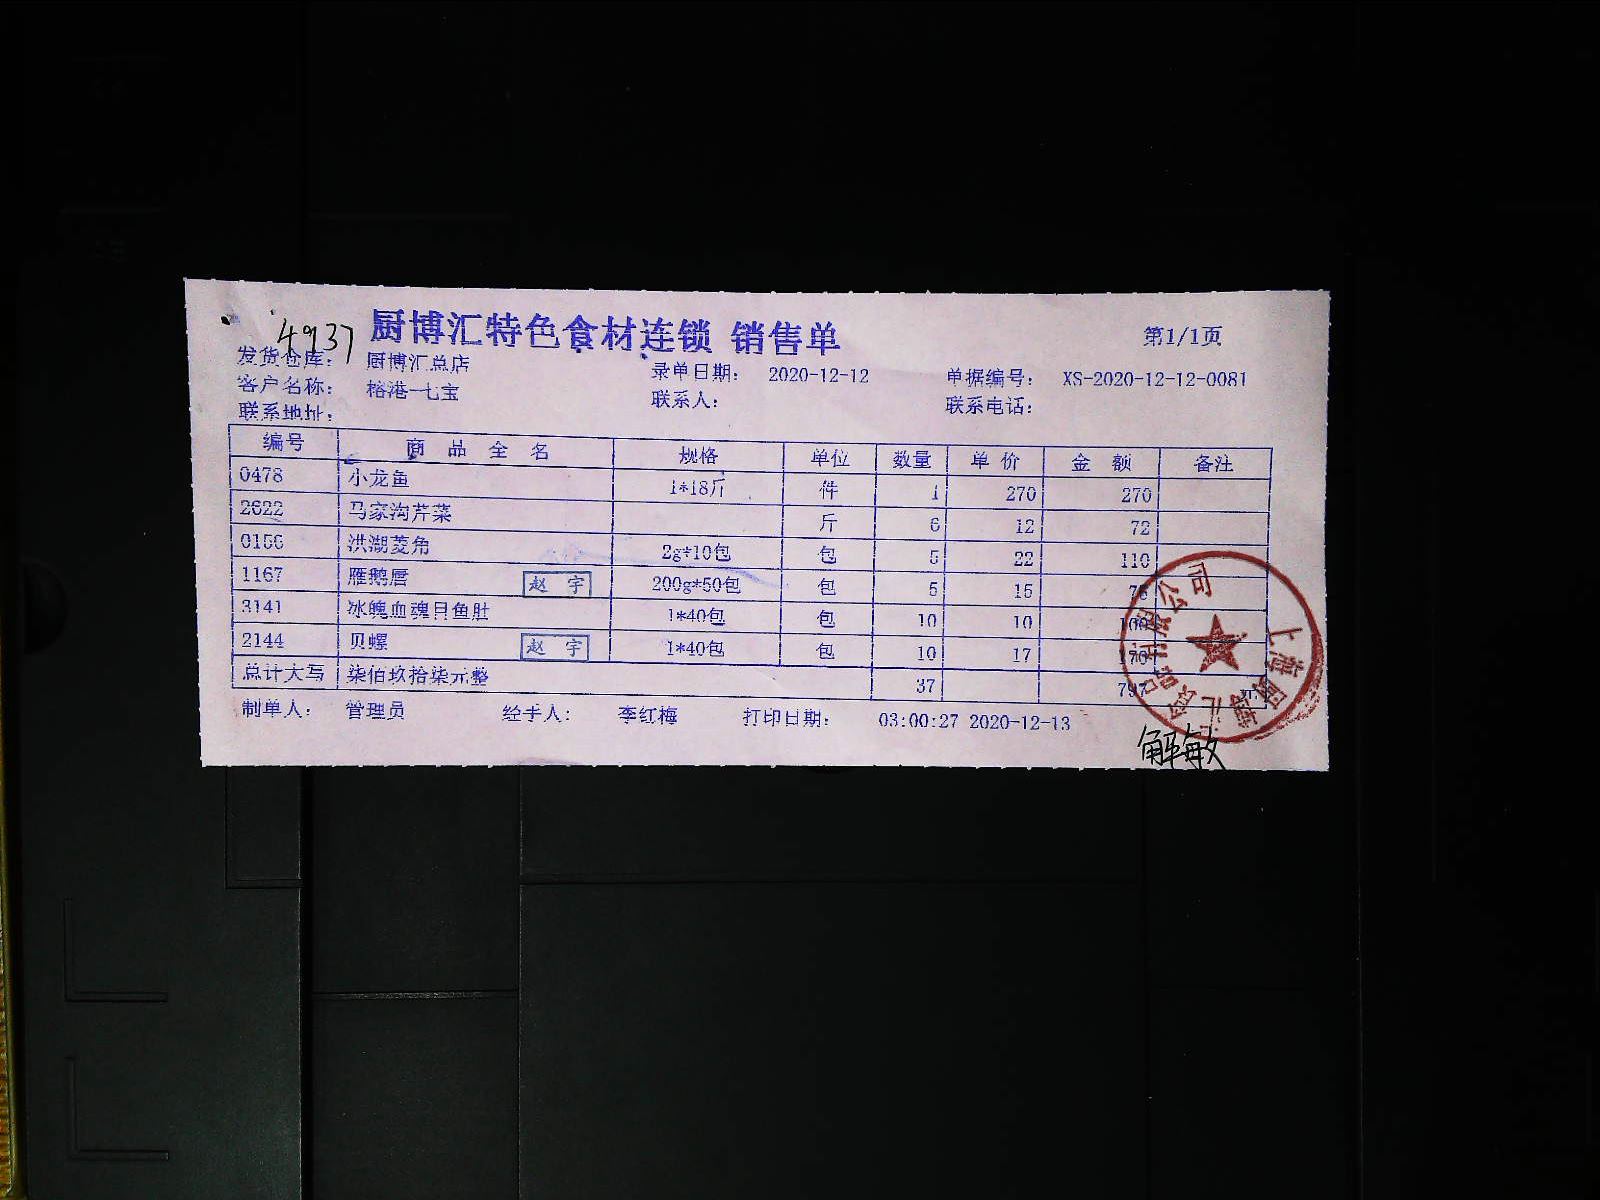 4937
厨博汇特色食材连锁 销售单
第1/1页
发货仓库： 厨博汇总店 录单日期： 2020-12-12 单据编号： XS-2020-12-12-0081
客户名称： 榕港一七宝 联系人： 联系电话：
联系地址：
编号 商品全名 规格 单位 数量 单价 金额 备注
0478 小龙鱼 1*18斤 件 1 270 270
2622 马家沟芹菜 斤 6 12 72
0156 洪湖菱角 2g*10包 包 5 22 110
1167 雁鹅唇 赵宇 200g*50包 包 5 15 75
3141 冰魄血魂目鱼肚 1*40包 包 10 10 100
2144 贝螺 赵宇 1*40包 包 10 17 170
总计大写 柒佰玖拾柒元整 37 797
制单人： 管理员 经手人： 李红梅 打印日期： 03:00:27 2020-12-13
解敏